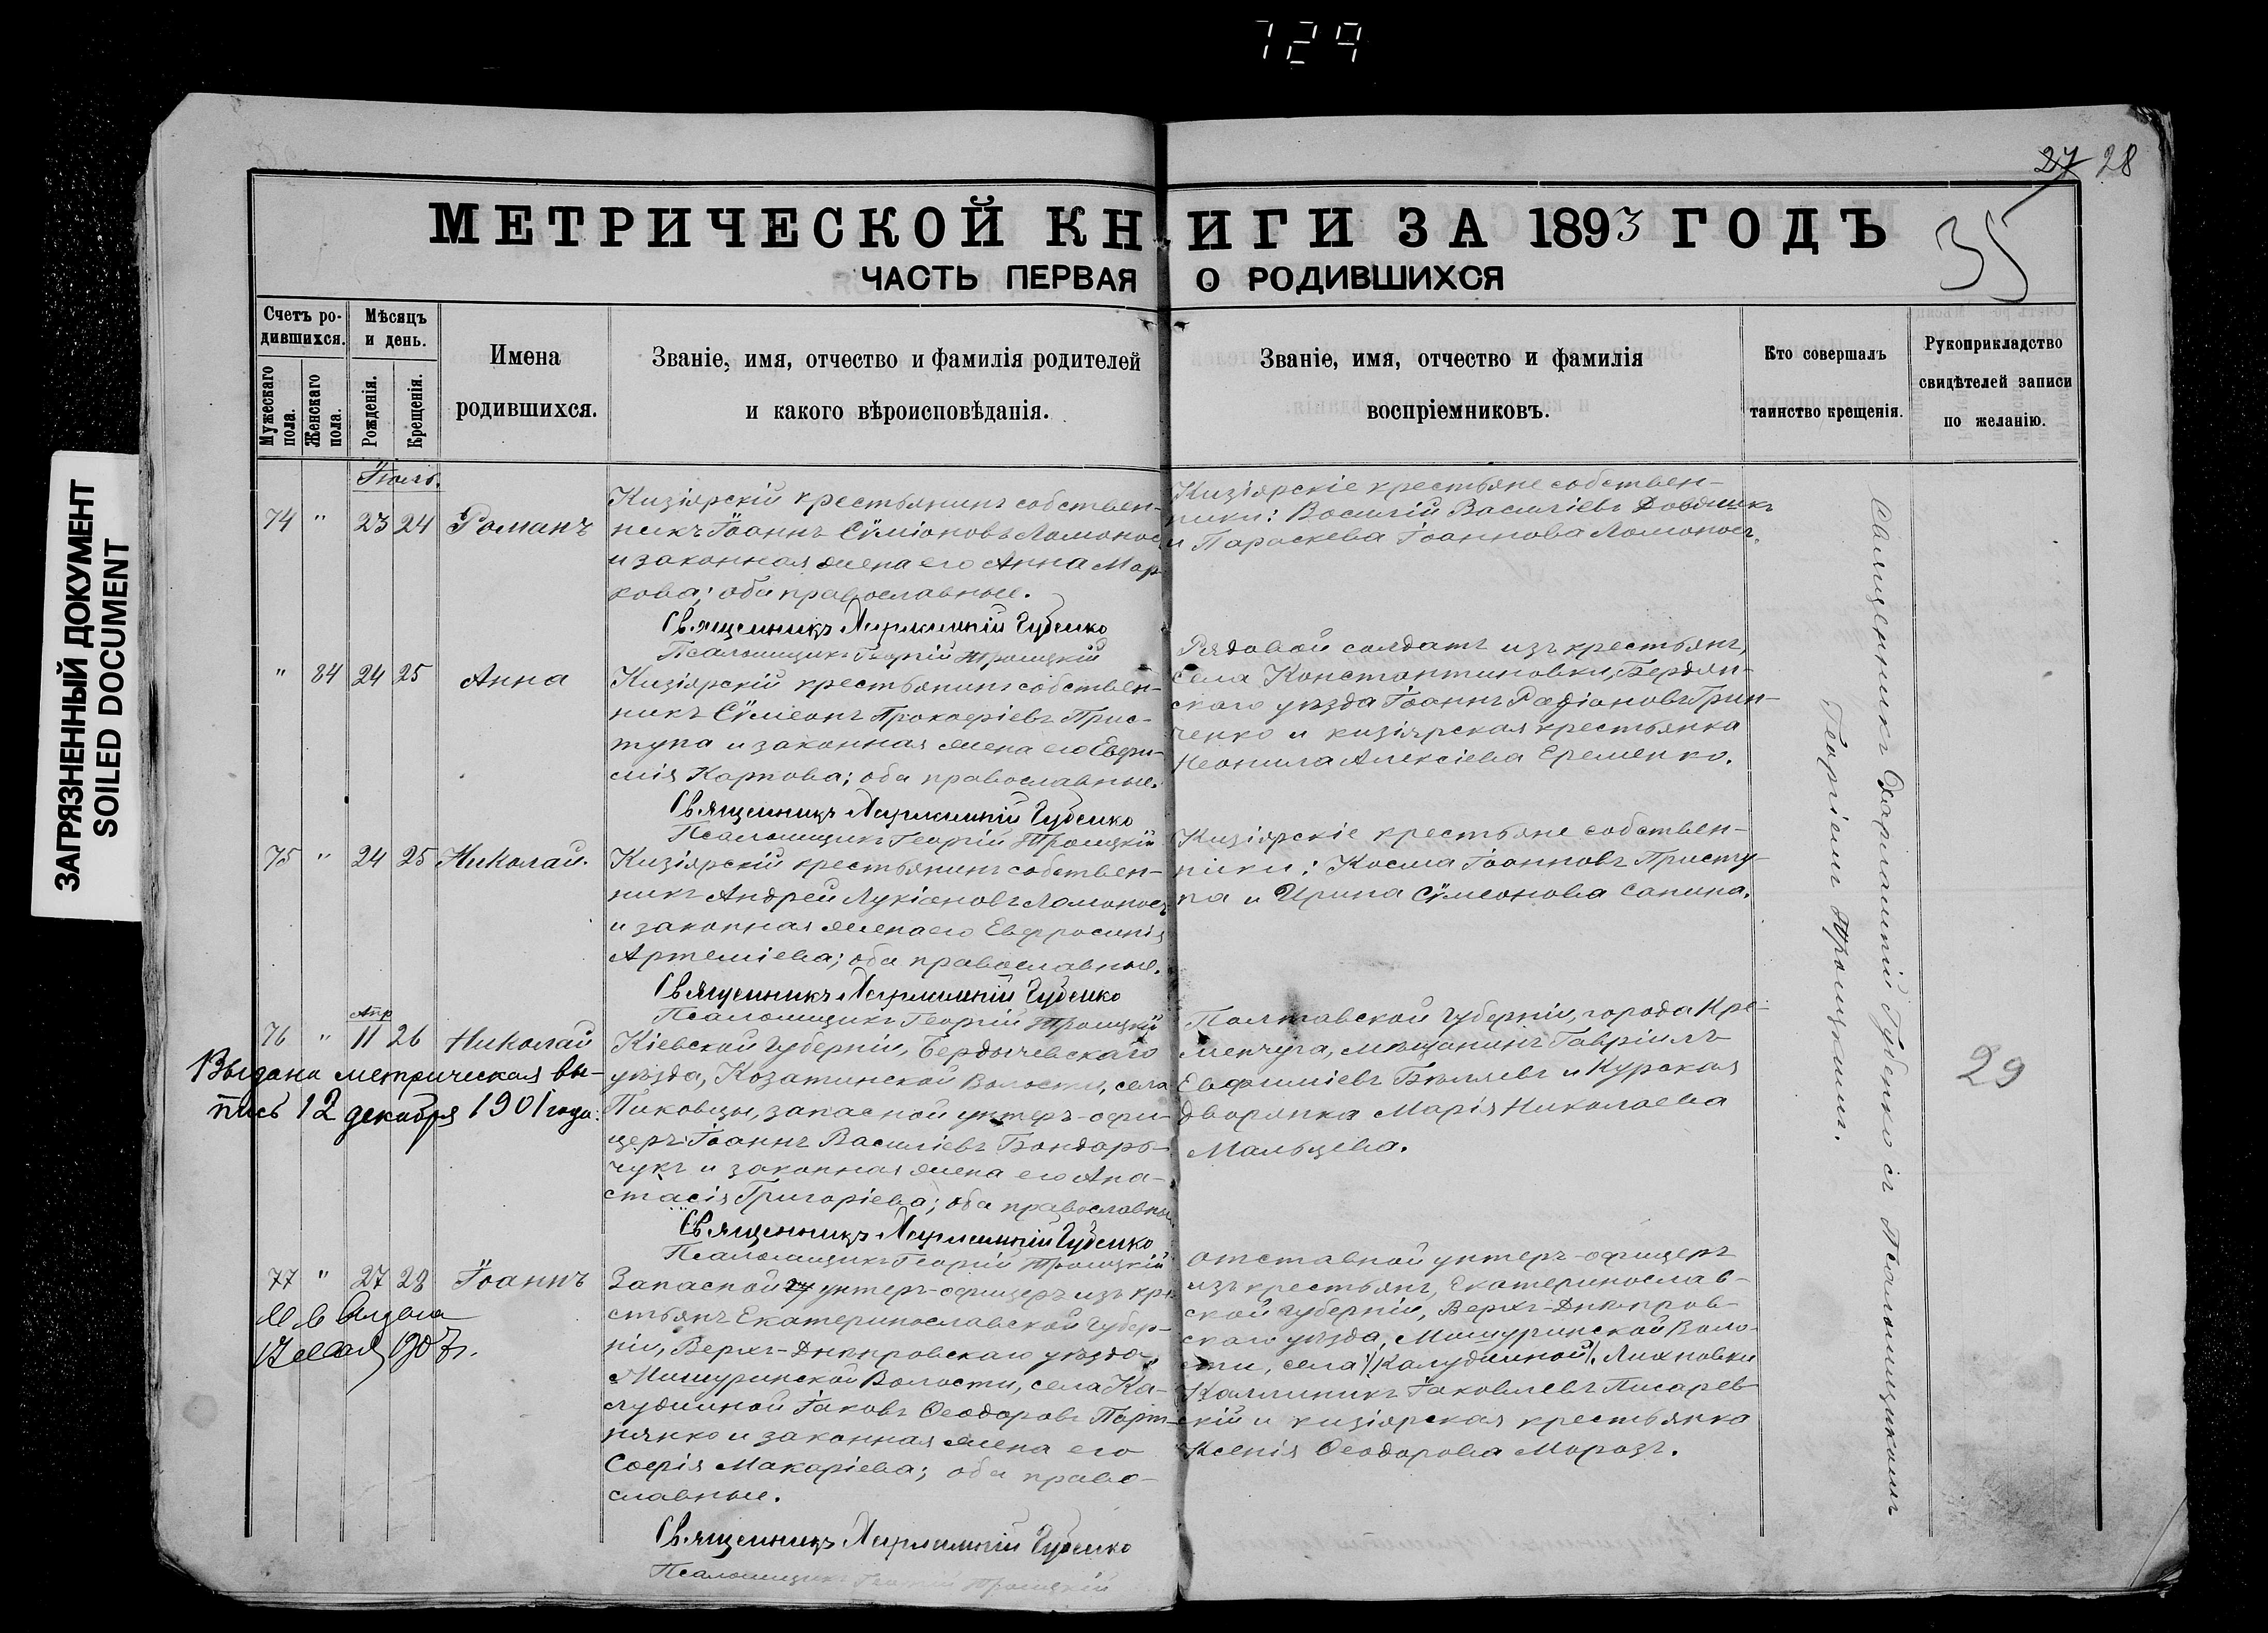 729
27 28
МЕТРИЧЕСКОЙ КНИГИ ЗА 1893 ГОДЪ
35
ЧАСТЬ ПЕРВАЯ О РОДИВШИХСЯ
Счетъ ро-
дившихся.
Мужескаго пола.
Женскаго пола.
Мѣсяцъ
и день.
Рожденія.
Крещенія.
Имена
родившихся.
Званіе, имя, отчество и фамилія родителей
и какого вѣроисповѣданія.
Званіе, имя, отчество и фамилія
воспріемниковъ.
Кто совершалъ
таинство крещенія.
Рукоприкладство
свидѣтелей записи
по желанію.
ЗАГРЯЗНЕННЫЙ ДОКУМЕНТ
SOILED DOCUMENT
Іюль.
74 " 23 24 Романъ
Кизіярскій крестьянинъ собствен-
никъ Іоаннъ Сѵміоновъ Ломонос
и законная жена его Анна Мар-
кова; оба православные.
Священникъ Харлампій Губенко
Псаломщикъ Георгій Троицкій
Кизіярскіе крестьяне собствен-
ники: Василій Василіевъ
и Параскева Іоаннова Ломонос.
" 84 24 25 Анна
Кизіярскій крестьянинъ собствен-
никъ Сѵмеонъ Прокофіевъ Прис-
тупа и законная жена его Евфи-
мія Карпова; оба православные.
Священникъ Харлампій Губенко
Псаломщикъ Георгій Троицкій
Рядовой солдатъ изъ крестьянъ,
села Константиновки, Бердян-
скаго уѣзда Іоаннъ Радіоновъ Грин-
ченко и кизіярская крестьянка
Неонила Алексіева Еременко.
75 " 24 25 Николай.
Кизіярскій крестьянинъ собствен-
никъ Андрей Лукіановъ Ломонос
и законная жена его Евфросинія
Артеміева; оба православные.
Священникъ Харлампій Губенко
Псаломщикъ Георгій Троицкій
Кизіярскіе крестьяне собствен-
ники: Косма Іоанновъ Присту-
па и Ирина Сѵмеонова Сапина.
Апр
76 " 11 26 Николай
Выдана метрическая вы-
пись 12 декабря 1901 года.
Кіевской Губерніи, Бердычевскаго
уѣзда, Козатинской Волости, села
Пиковцы, запасной унтеръ-офи-
церъ Іоаннъ Василіевъ Бондарь-
чукъ и законная жена его Ана-
стасія Григоріева; оба православны
Священникъ Харлампій Губенко
Псаломщикъ Георгій Троицкій
Полтавской Губерніи, города Кре-
менчуга, мѣщанинъ Гавріилъ
Евфиміевъ Бѣляевъ и Курская
дворянка Марія Николаева
Мальцева.
29
77 " 27 28 Іоаннъ
М. в. выдана
17 мая 1907 г.
Запасной унтеръ-офицеръ изъ кре-
стьянъ Екатеринославской Губер-
ніи, Верхъ-Днѣпровскаго уѣзда,
Мишуринской Волости, села Ка-
лудиной Іаковъ Ѳеодоровъ Порт-
нянко и законная жена его
Софія Макаріева; оба право-
славные.
Священникъ Харлампій Губенко
Псаломщикъ Георгій Троицкій
Отставной унтеръ-офицеръ
изъ крестьянъ, Екатеринослав-
ской Губерніи, Верхъ-Днѣпров-
скаго уѣзда, Мишуринской Воло-
сти, села Лихновки
Каллиникъ Іаковлевъ Писарев-
скій и кизіярская крестьянка
Ксенія Ѳеодорова Морозъ.
Священникъ Харлампій Губенко съ Псаломщикомъ
Георгіемъ Троицкимъ.